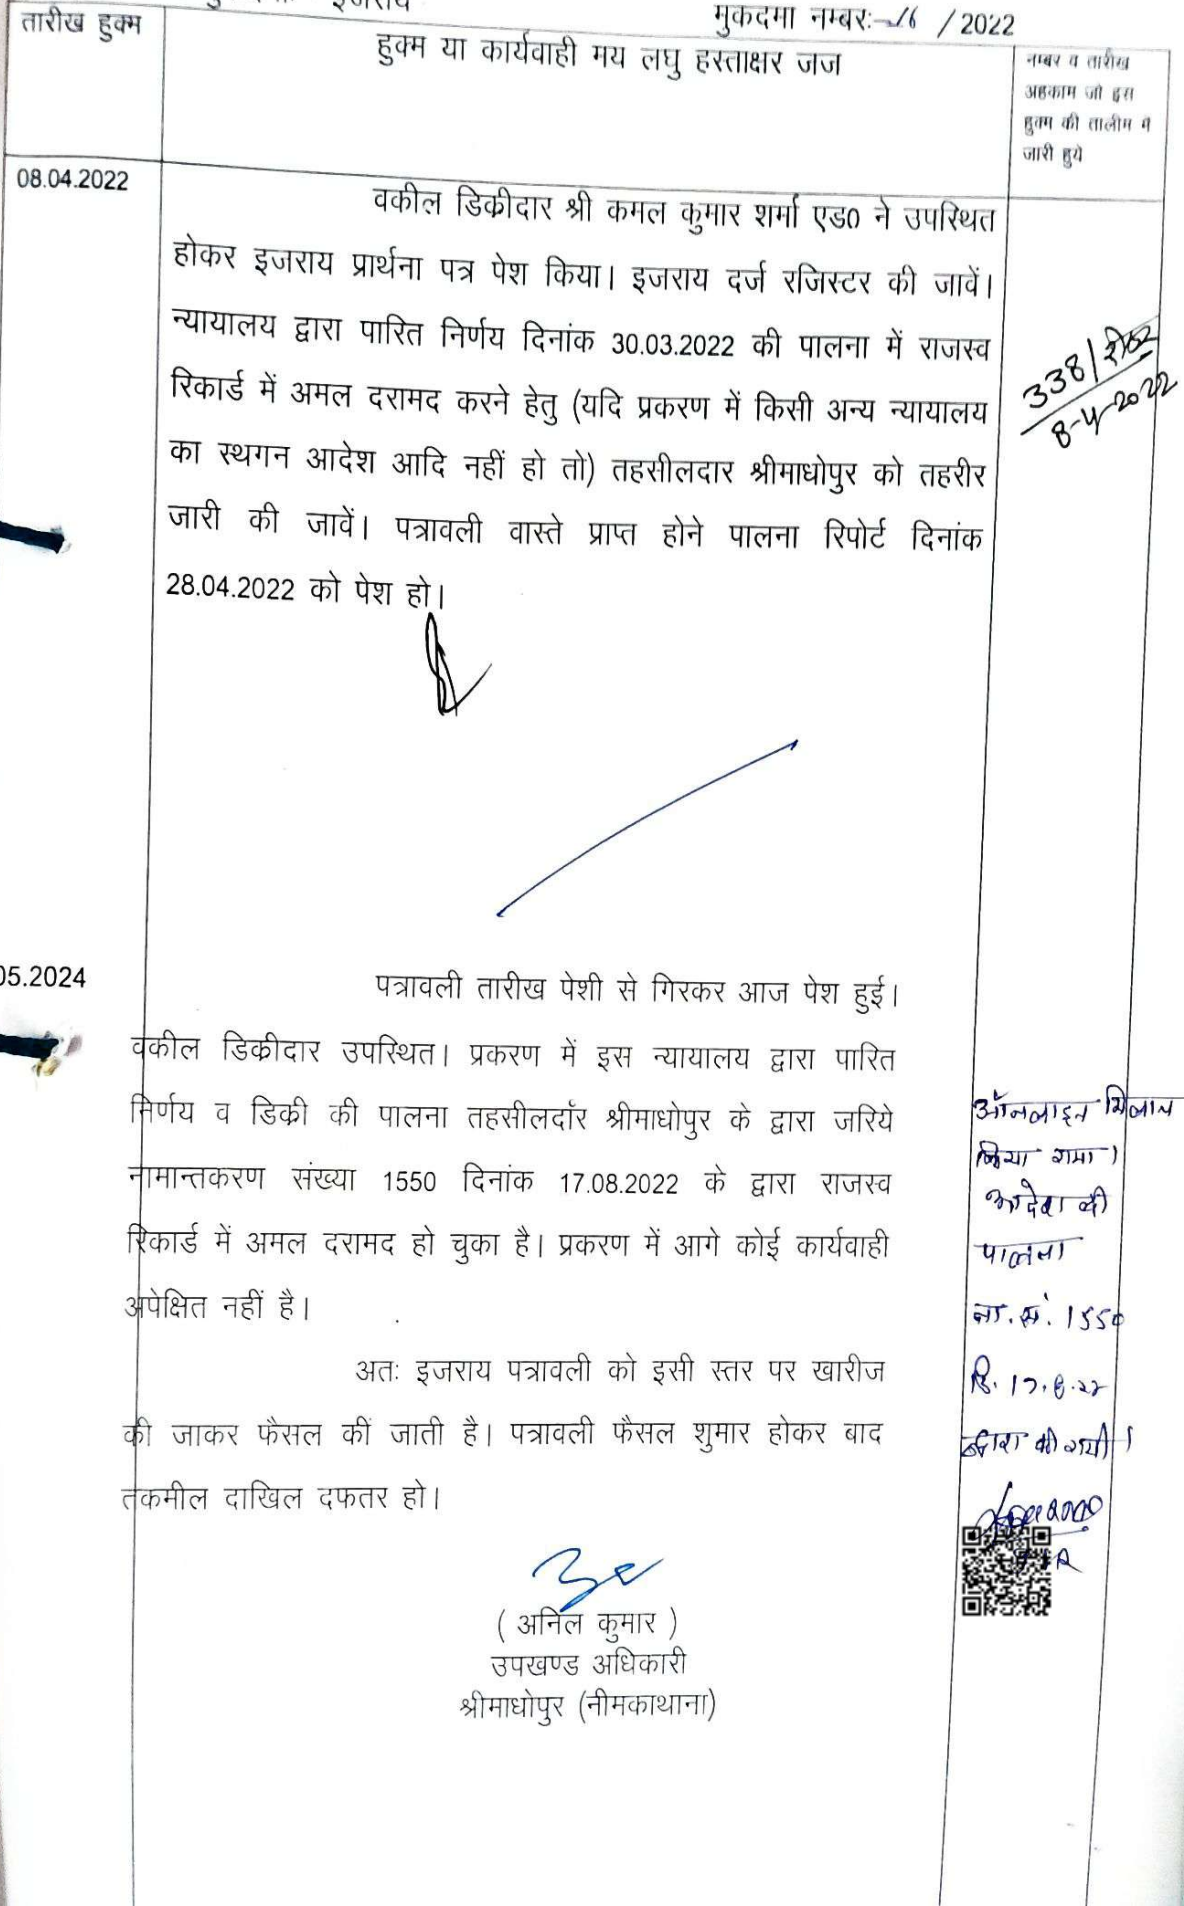 इजराय
मुकदमा नम्बरः- 16 / 2022
तारीख हुक्म
हुक्म या कार्यवाही मय लघु हस्ताक्षर जज
नम्बर व तारीख
अहकाम जो इस
हुक्म की तालीम में
जारी हुये
08.04.2022
वकील डिकीदार श्री कमल कुमार शर्मा एड0 ने उपस्थित
होकर इजराय प्रार्थना पत्र पेश किया। इजराय दर्ज रजिस्टर की जावें।
न्यायालय द्वारा पारित निर्णय दिनांक 30.03.2022 की पालना में राजस्व
रिकार्ड में अमल दरामद करने हेतु (यदि प्रकरण में किसी अन्य न्यायालय
का स्थगन आदेश आदि नहीं हो तो) तहसीलदार श्रीमाधोपुर को तहरीर
जारी की जावें। पत्रावली वास्ते प्राप्त होने पालना रिपोर्ट दिनांक
28.04.2022 को पेश हो।
338/रीडर
8-4-2022
05.2024
पत्रावली तारीख पेशी से गिरकर आज पेश हुई।
वकील डिकीदार उपस्थित। प्रकरण में इस न्यायालय द्वारा पारित
निर्णय व डिकी की पालना तहसीलदॉर श्रीमाधोपुर के द्वारा जरिये
नामान्तकरण संख्या 1550 दिनांक 17.08.2022 के द्वारा राजस्व
रिकार्ड में अमल दरामद हो चुका है। प्रकरण में आगे कोई कार्यवाही
अपेक्षित नहीं है।
अतः इजराय पत्रावली को इसी स्तर पर खारीज
की जाकर फैसल कीं जाती है। पत्रावली फैसल शुमार होकर बाद
तकमील दाखिल दफतर हो।
ऑनलाइन मिलान
किया गया।
आदेश की
पालना
ना.सं. 1550
दि. 17.8.22
द्वारा की गयी।
( अनिल कुमार )
उपखण्ड अधिकारी
श्रीमाधोपुर (नीमकाथाना)